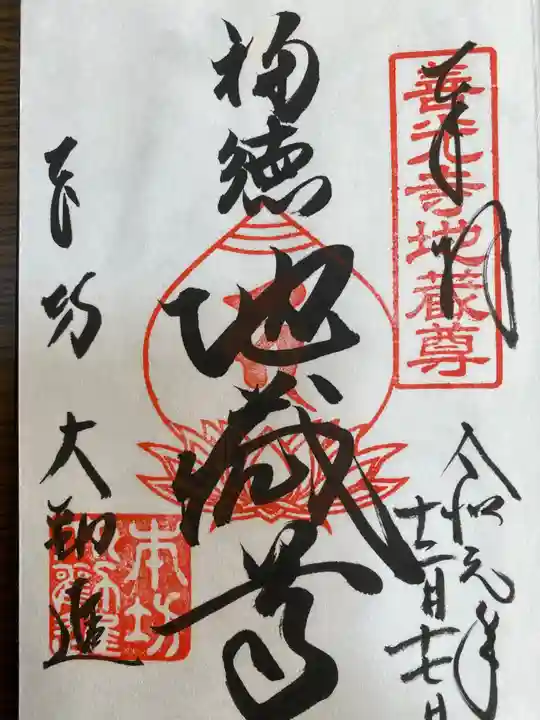 奉拝
善光寺地蔵尊
令和元年
十二月十七日
福徳
地蔵尊
本坊 大勧進
本坊
大勧進